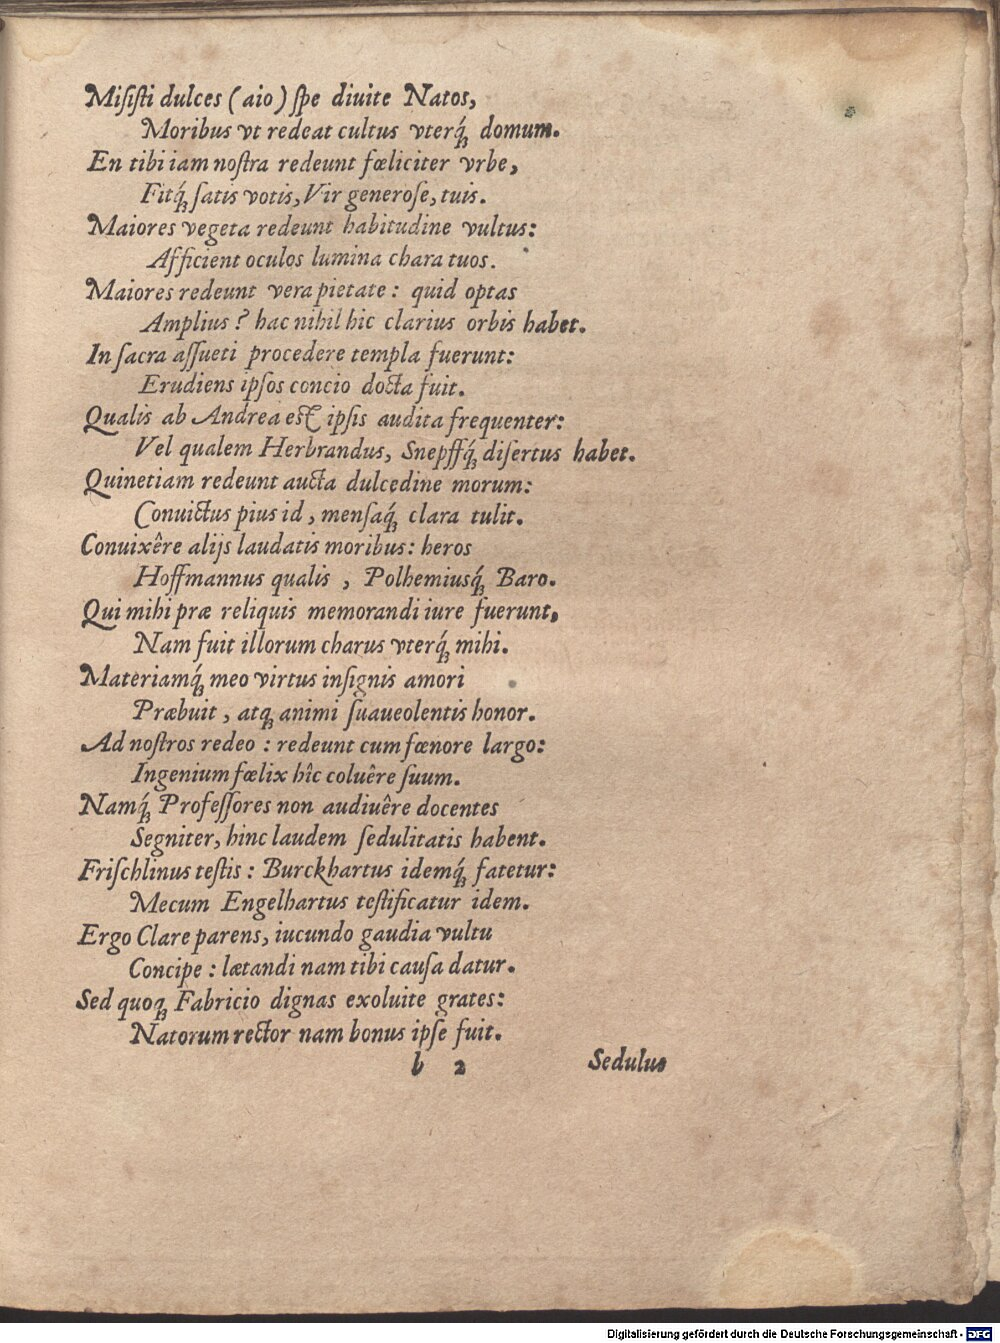 Misisti dulces (aio) spe diuite Natos,
Moribus vt redeat cultus vterq́; domum.
En tibi iam nostra redeunt fœliciter vrbe,
Fitq́; satis votis, Vir generose, tuis.
Maiores vegeta redeunt habitudine vultus:
Afficient oculos lumina chara tuos.
Maiores redeunt vera pietate: quid optas
Amplius? hac nihil hic clarius orbis habet.
In sacra assueti procedere templa fuerunt:
Erudiens ipsos concio docta fuit.
Qualis ab Andrea est ipsis audita frequenter:
Vel qualem Herbrandus, Snepffq́; disertus habet.
Quinetiam redeunt aucta dulcedine morum:
Conuictus pius id, mensaq́; clara tulit.
Conuixêre alijs laudatis moribus: heros
Hoffmannus qualis, Polhemiusq́; Baro.
Qui mihi præ reliquis memorandi iure fuerunt,
Nam fuit illorum charus vterq́; mihi.
Materiamq́; meo virtus insignis amori
Præbuit, atq; animi suaueolentis honor.
Ad nostros redeo: redeunt cum fœnore largo:
Ingenium fœlix hîc coluêre suum.
Namq́; Professores non audiuêre docentes
Segniter, hinc laudem sedulitatis habent.
Frischlinus testis: Burckhartus idemq́; fatetur:
Mecum Engelhartus testificatur idem.
Ergo Clare parens, iucundo gaudia vultu
Concipe: lætandi nam tibi causa datur.
Sed quoq; Fabricio dignas exoluite grates:
Natorum rector nam bonus ipse fuit.
b 2 Sedulus
Digitalisierung gefördert durch die Deutsche Forschungsgemeinschaft - DFG